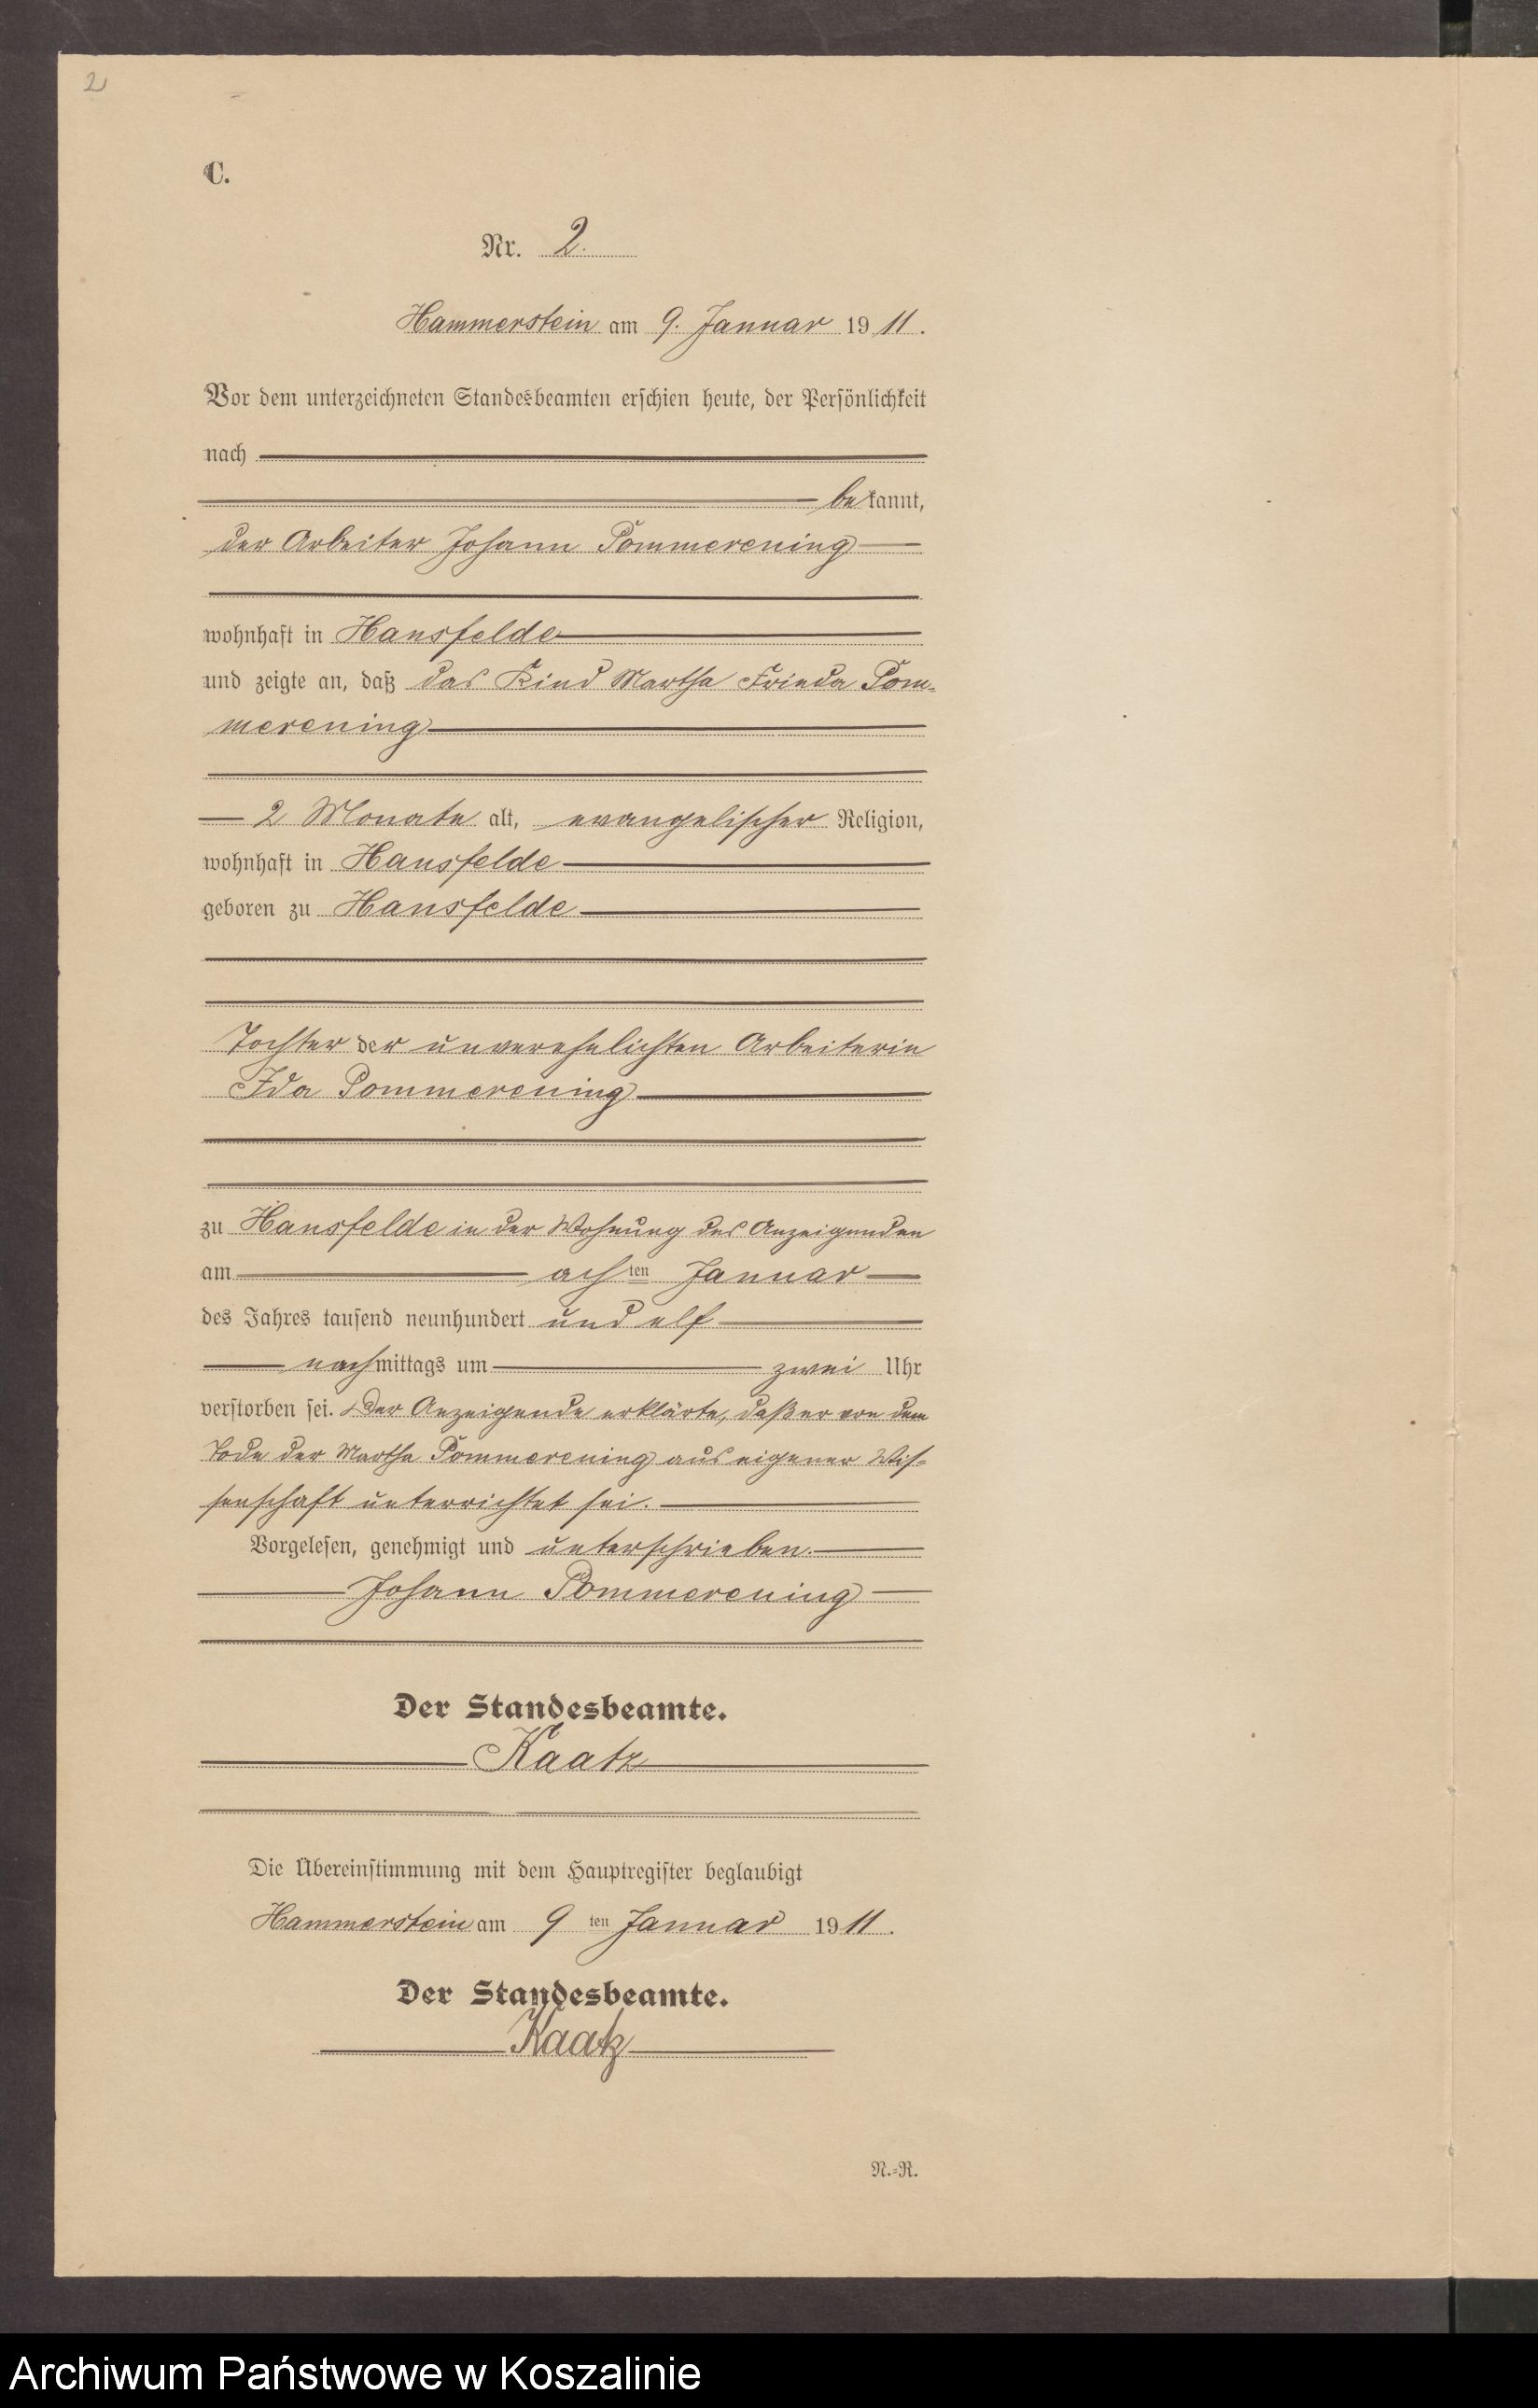 2
C.
Nr. 2.
Hammerstein am 9. Januar 1911.
Vor dem unterzeichneten Standesbeamten erschien heute, der Persönlichkeit
nach
bekannt,
der Arbeiter Johann Pommerening
wohnhaft in Hansfelde
und zeigte an, daß das Kind Martha Frieda Pom-
merening
2 Monate alt, evangelischer Religion,
wohnhaft in Hansfelde
geboren zu Hansfelde
Tochter der unverehelichten Arbeiterin
Ida Pommerening
zu Hansfelde in der Wohnung des Anzeigenden
am achten Januar
des Jahres tausend neunhundert und elf
nachmittags um zwei Uhr
verstorben sei. Der Anzeigende erklärte, daß er von dem
Tode der Martha Pommerening aus eigener Wis-
senschaft unterrichtet sei.
Vorgelesen, genehmigt und unterschrieben.
Johann Pommerening
Der Standesbeamte.
Kaatz
Die Übereinstimmung mit dem Hauptregister beglaubigt
Hammerstein am 9ten Januar 1911.
Der Standesbeamte.
Kaatz
N.-R.
Archiwum Państwowe w Koszalinie